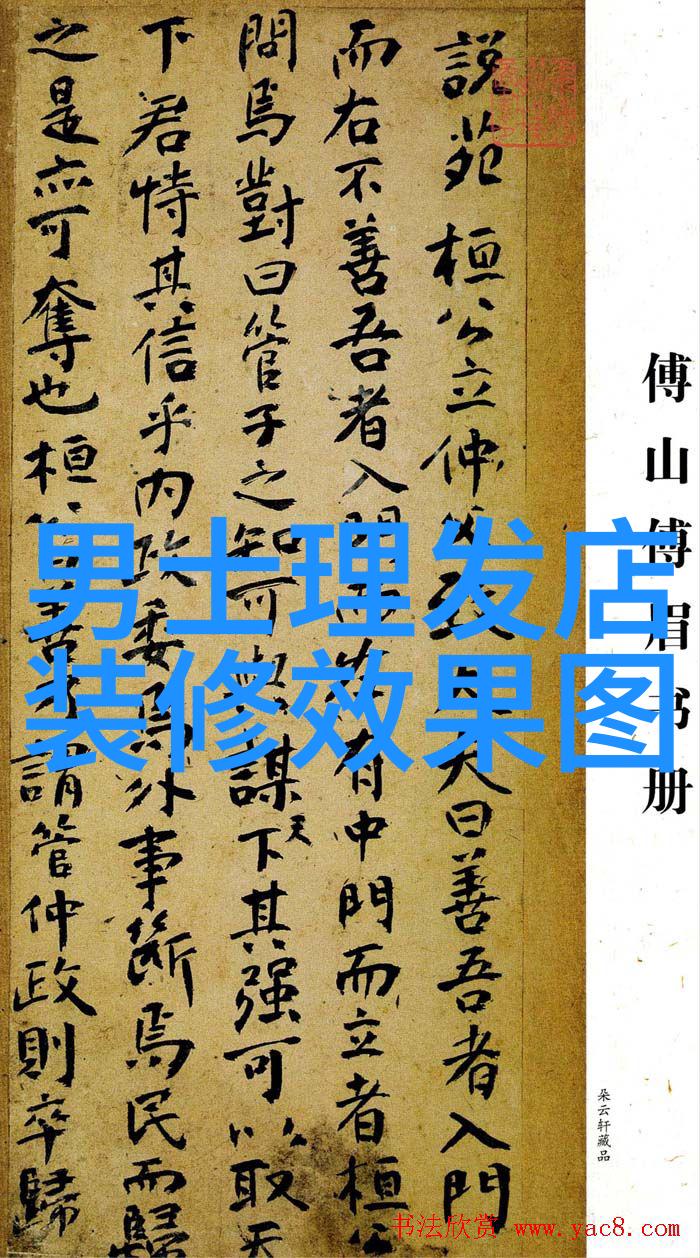 傅山傅眉书册
朵云轩藏品
說苑 桓公立仲父致大夫曰善吾者入門
而右不善吾者入門而左有中門而立者桓公
問焉對曰管子之知可與謀天下其强可以取天
下君恃其信乎内政委焉外事斷焉民而歸
之是亦可奪也桓公曰善乃謂管仲政則卒歸
男士理发店
装修效果图
书法欣赏 www.yac8.com